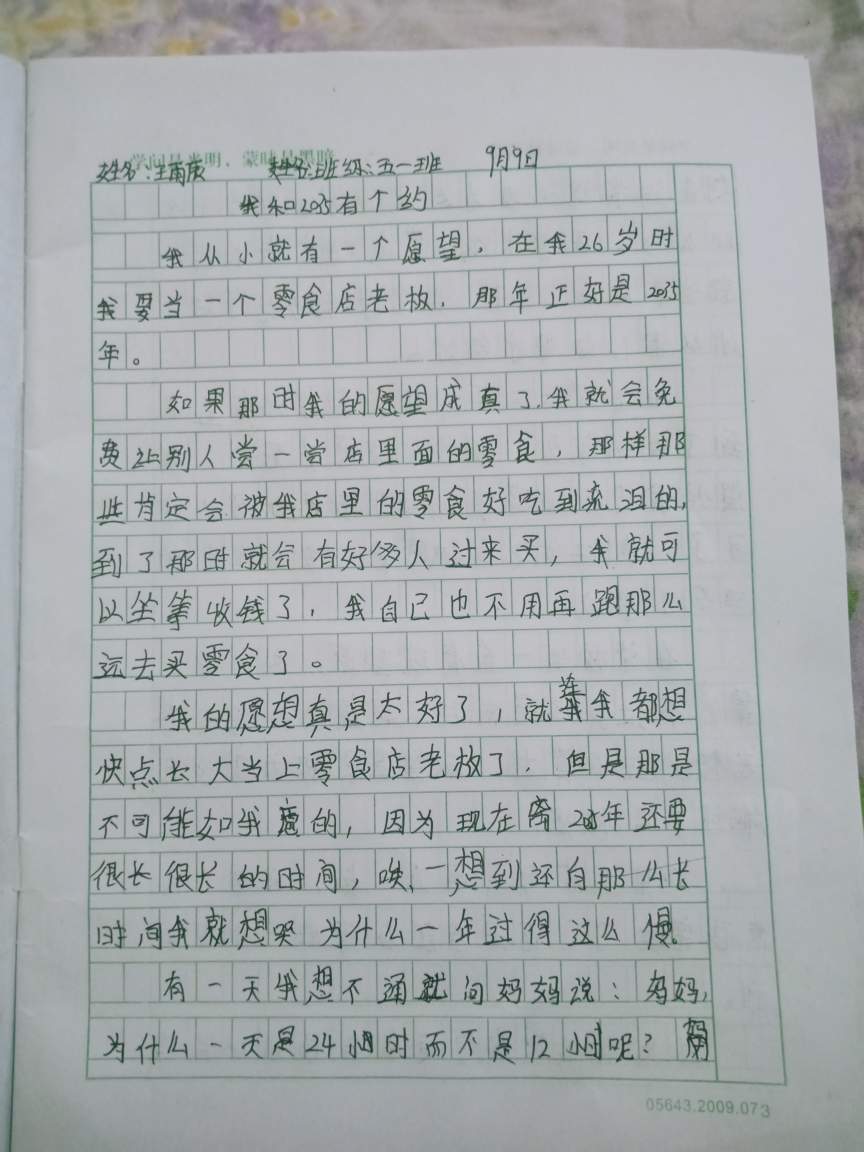 学问是光明，蒙昧是黑暗
姓名：王雨辰 班级：五一班 9月9日
我和2035有个约
我从小就有一个愿望，在我26岁时
我要当一个零食店老板，那年正好是2035
年。
如果那时我的愿望成真了，我就会免
费让别人尝一尝店里面的零食，那样那
些肯定会被我店里的零食好吃到流泪的，
到了那时就会有好多人过来买，我就可
以坐等收钱了，我自己也不用再跑那么
远去买零食了。
我的愿想真是太好了，就连我都想
快点长大当上零食店老板了，但是那是
不可能如我意的，因为现在离2035年还要
很长很长的时间，唉，一想到还有那么长
时间我就想哭 为什么一年过得这么慢。
有一天我想不通就问妈妈说：妈妈，
为什么一天是24小时而不是12小时呢？妈
05643.2009.073